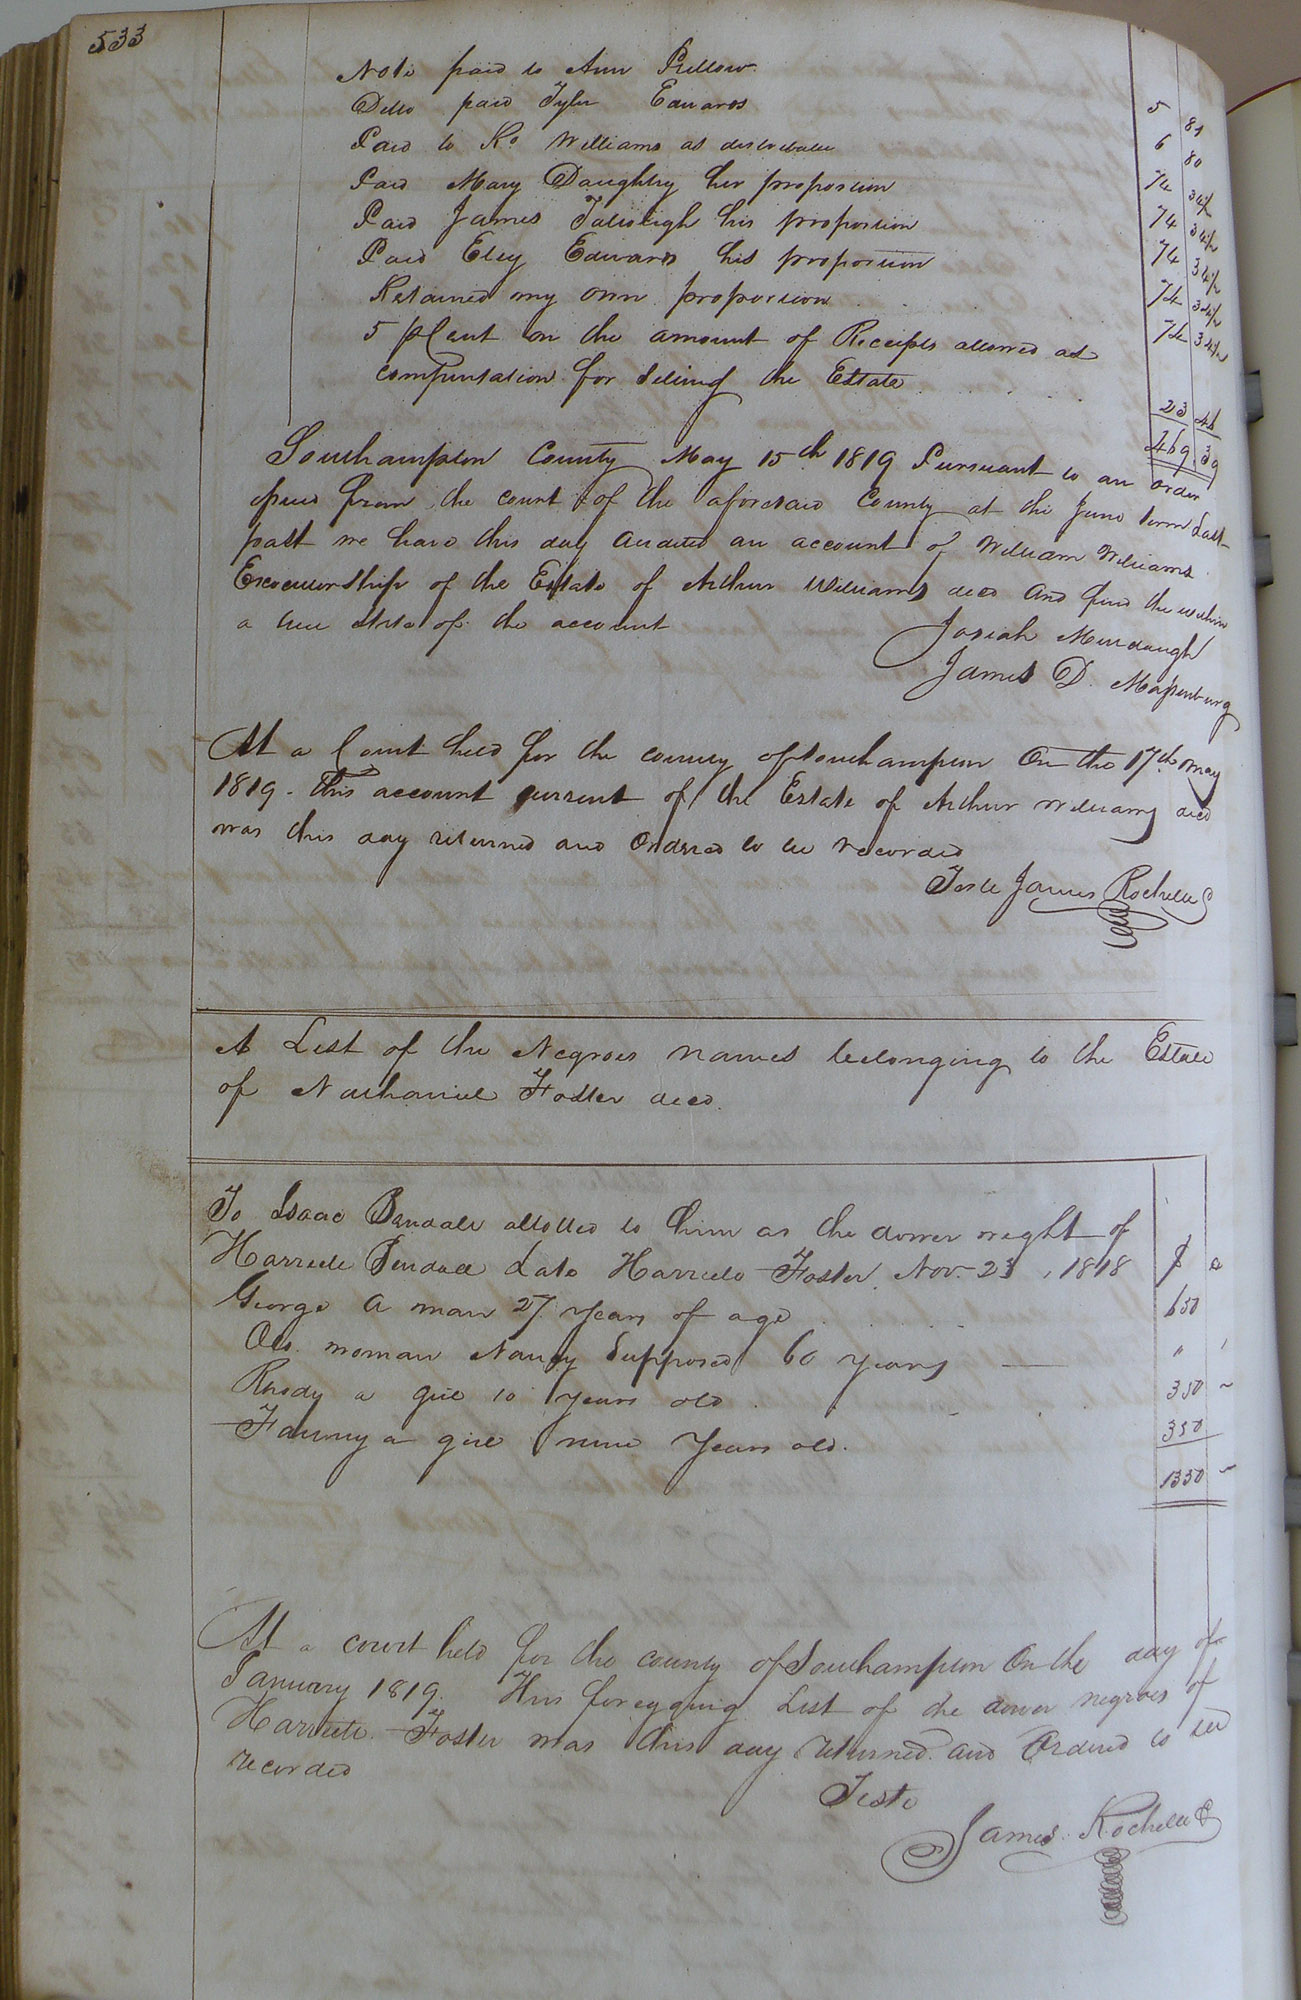 533
Note paid to Ann Pellow
Ditto paid Tyler Edwards 5 81
Paid to Ro Williams as distributee 6 80
Paid Mary Daughtry her proportion 74 34½
Paid James his proportion 74 34½
Paid Eley Edwards his proportion 74 34½
Retained my own proportion 74 34½
5 pCent on the amount of Receipts allowed as 74 34½
compensation for the Estate 23 46
469.39
Southampton County May 15th 1819 Pursuant to an order
from the court of the aforesaid County at the June term Last
past we have this day audited an account of William Williams
Executorship of the Estate of Arthur Williams decd and find the within
a true state of the account
Josiah
James D. Massenburg
At a Court held for the county of Southampton On the 17th May
1819 - This account current of the Estate of Arthur Williams decd
was this day returned and Ordered to be recorded
Teste James Rochelle C
A List of the Negroes names belonging to the Estate
of Nathaniel Foster decd.
To Isaac allotted to him as the dower wright of
Harriele Late Harriele Foster Nov. 23, 1818 $ c
George a man 27 years of age 650
Old woman Nancy Supposed 60 years "
Rhody a girl 10 years old 350
Fanny a girl nine years old. 350
1350
At a court held for the county of Southampton On the day of
January 1819. This foregoing List of the dower negroes of
Harriete Foster was this day returned and Ordered to be
recorded
Teste
James Rochelle C